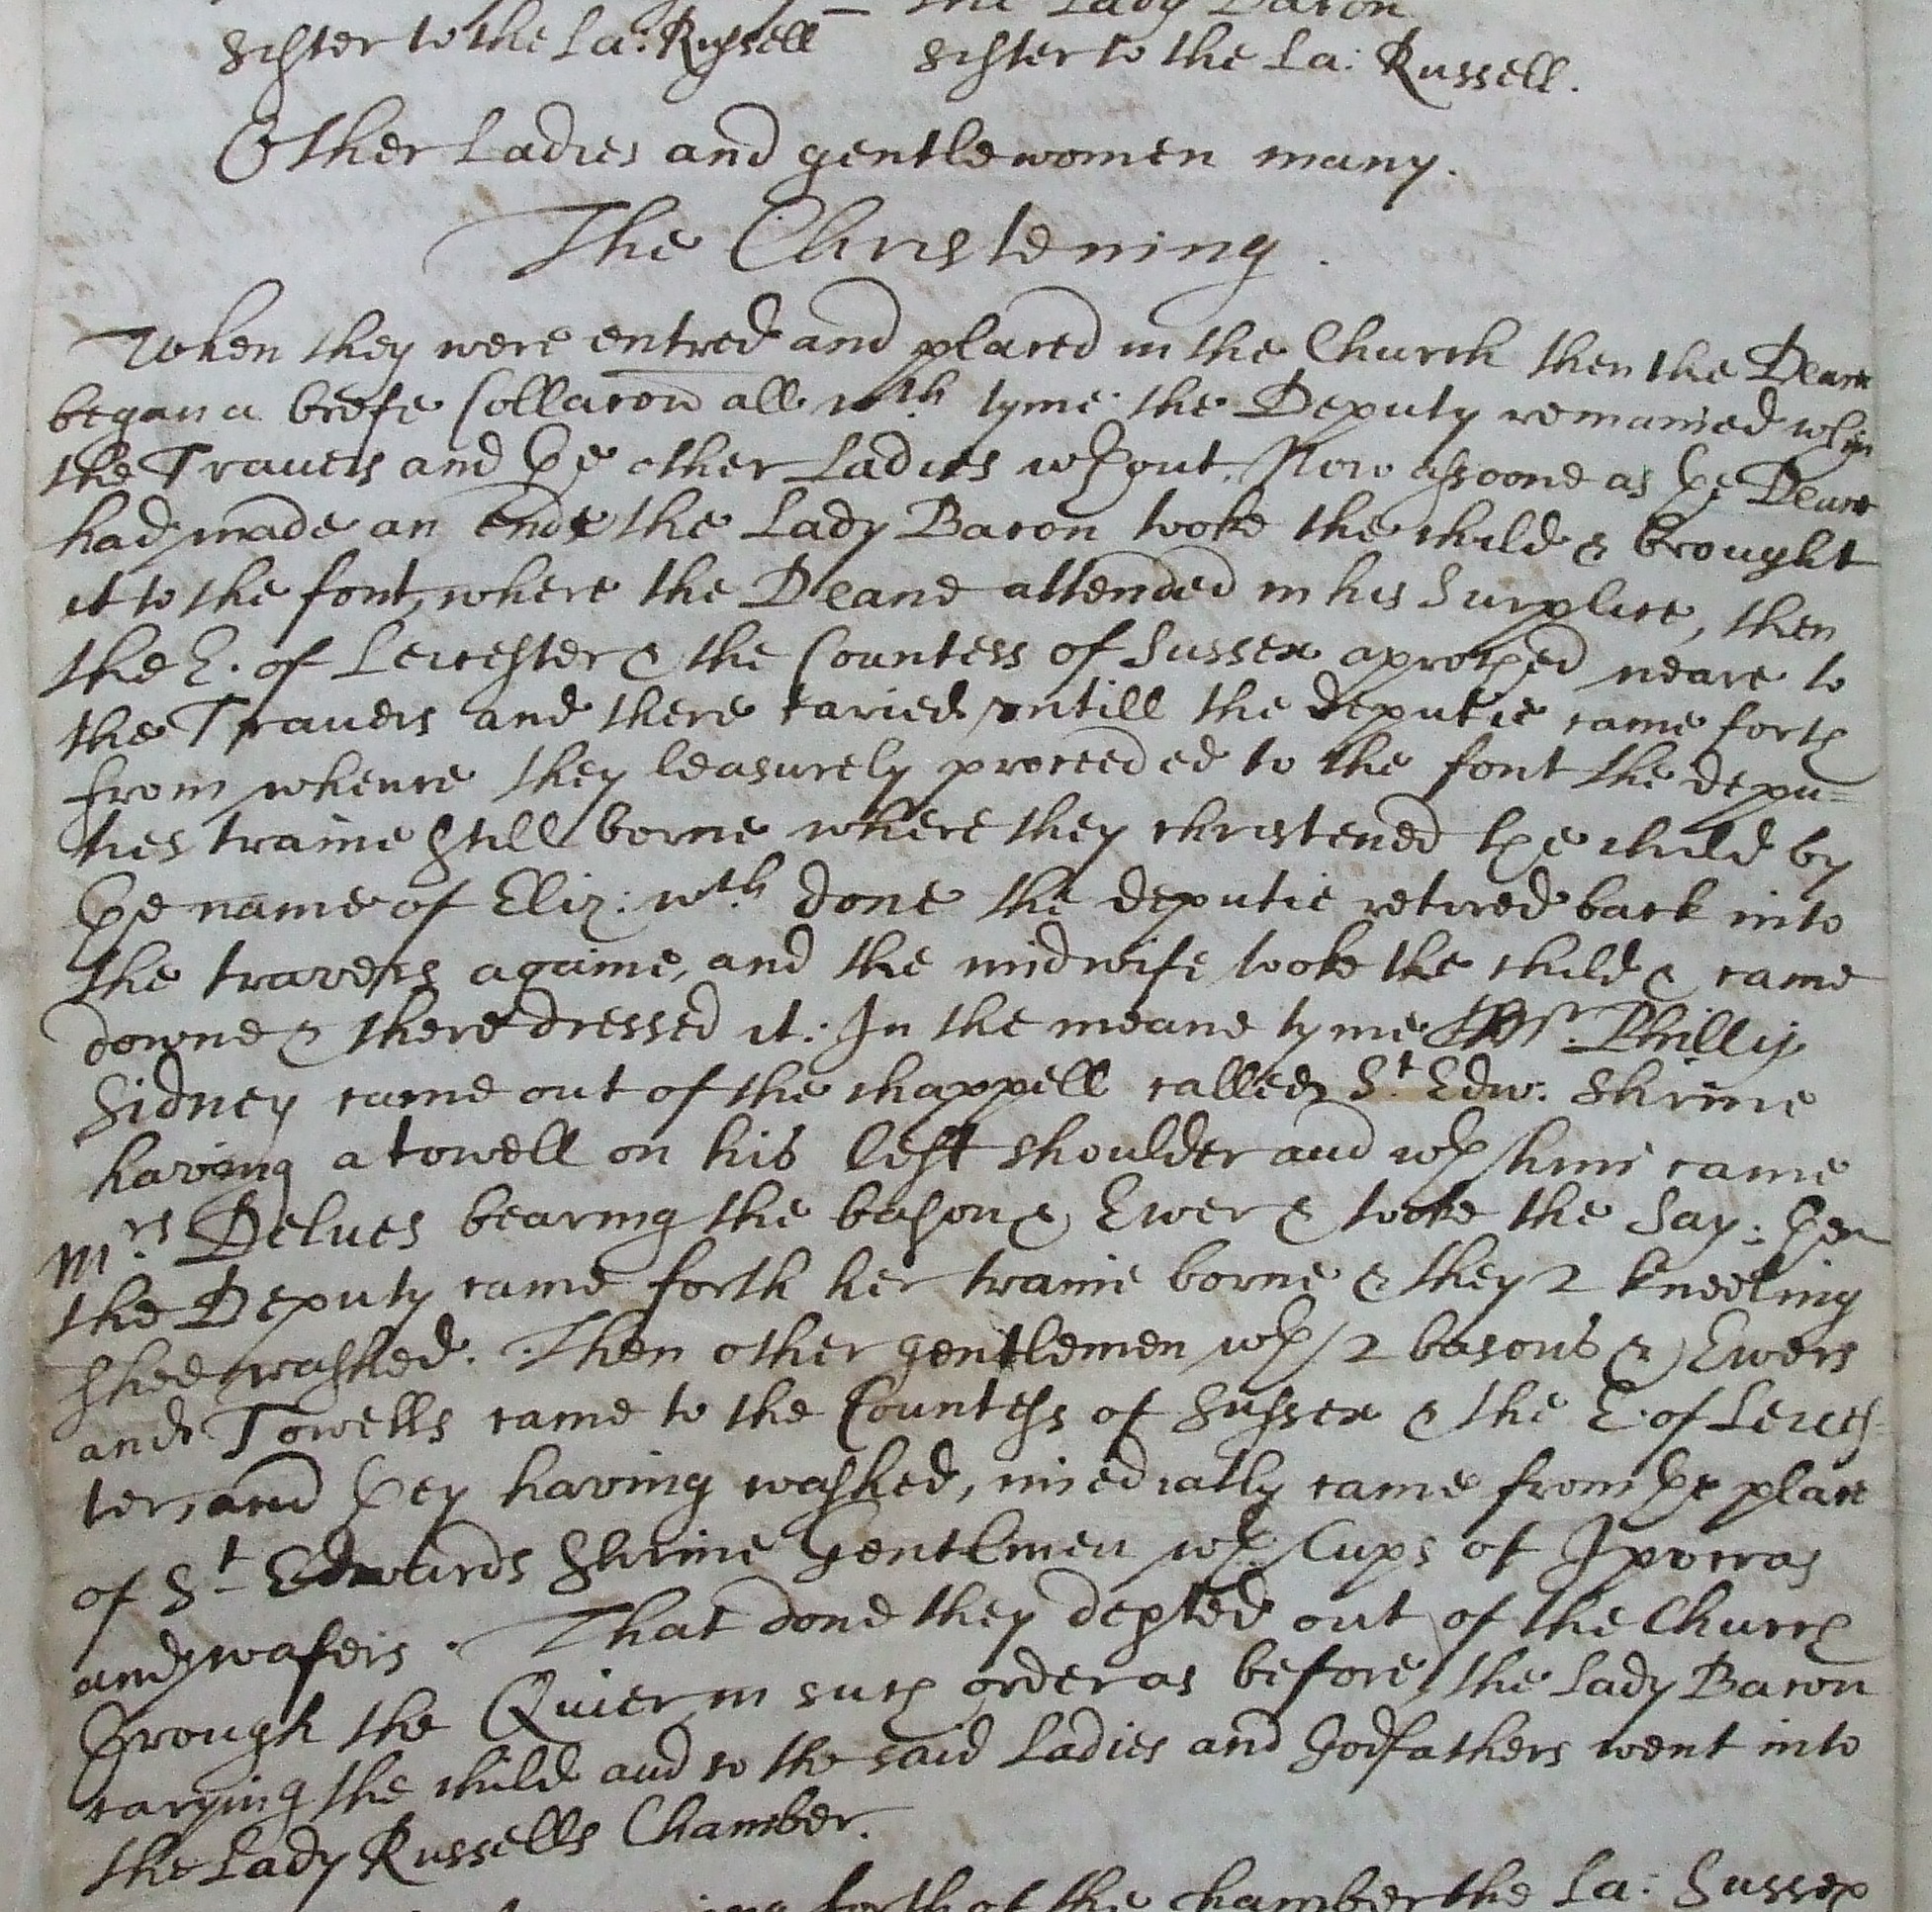 the Lady Bacon
Sister to the La: Russell Sister to the La: Russell.
Other Ladies and gentlewomen many.
The Christening.
When they were entred and placed in the Church then the Deane
began a brefe Collacon all wch tyme the Deputy remained wthin
the Travers and the other Ladies wthout. Now assoone as the Deane
had made an ende the Lady Bacon tooke the child & brought
it to the font, where the Deane attended in his Surplice, then
the E. of Leicester & the Countess of Sussex aproched neare to
the Travers and there taried untill the deputie came forth
from whence they leasurely proceeded to the font the depu=
ties traine still borne where they christened the child by
the name of Eliz: wch done the deputie retired back into
the travers againe, and the midwife tooke the child & came
downe & there dressed it. In the meane tyme Mr. Phillip
Sidney came out of the chappell called St. Edw: Shrine
having a towell on his left shoulder and wth him came
Mrs Delves bearing the bason & Ewer & tooke the Say: then
the Deputy came forth her traine borne & they 2 kneeling
shee washed. Then other gentlemen wth 2 basons & Ewers
and Towells came to the Countess of Sussex & the E. of Leices-
ter, and they having washed, imediatly came from the place
of St Edwards Shrine Gentlmen wth Cups of Ipocras
and wafers. That done they depted out of the Church
through the Quier in such order as before, the Lady Bacon
carying the child and so the said Ladies and Godfathers went into
the Lady Russells Chamber.
forth of the chamber the La: Sussex